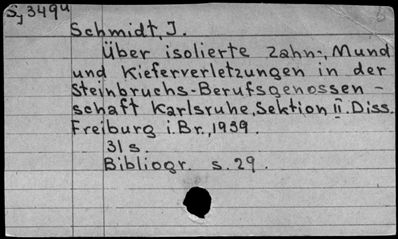 S, 349u
Schmidt, J.
Über isolierte Zahn-, Mund
und Kieferverletzungen in der
Steinbruchs-Berufsgenossen-
schaft Karlsruhe, Sektion II. Diss.
Freiburg i. Br., 1939.
31 s.
Bibliogr. s. 29.